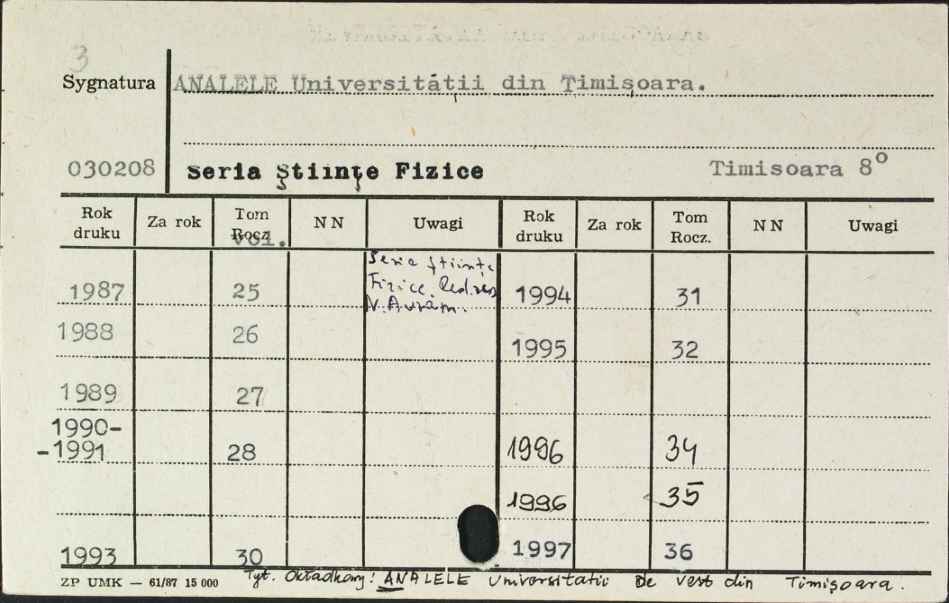 3
Sygnatura ANALELE Universitátii din Ţimişoara.
030208 seria Ştiinţe Fizice Timisoara 8º
Rok druku Za rok Tom Rocz. vol. NN Uwagi Rok druku Za rok Tom Rocz. NN Uwagi
Seria ştiinţe
Fizice.
N. Avram.
1987 25 1994 31
1988 26
1995 32
1989 27
1990-
-1991 28 1996 34
1996 35
1993 30 1997 36
ZP UMK — 61/87 15 000 Tyt. Okładkowy: ANALELE Universitatii De vest din Timişoara.